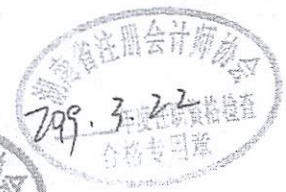 省注册会计师协会
2009.3.22
年度任职资格检查
合格专用章